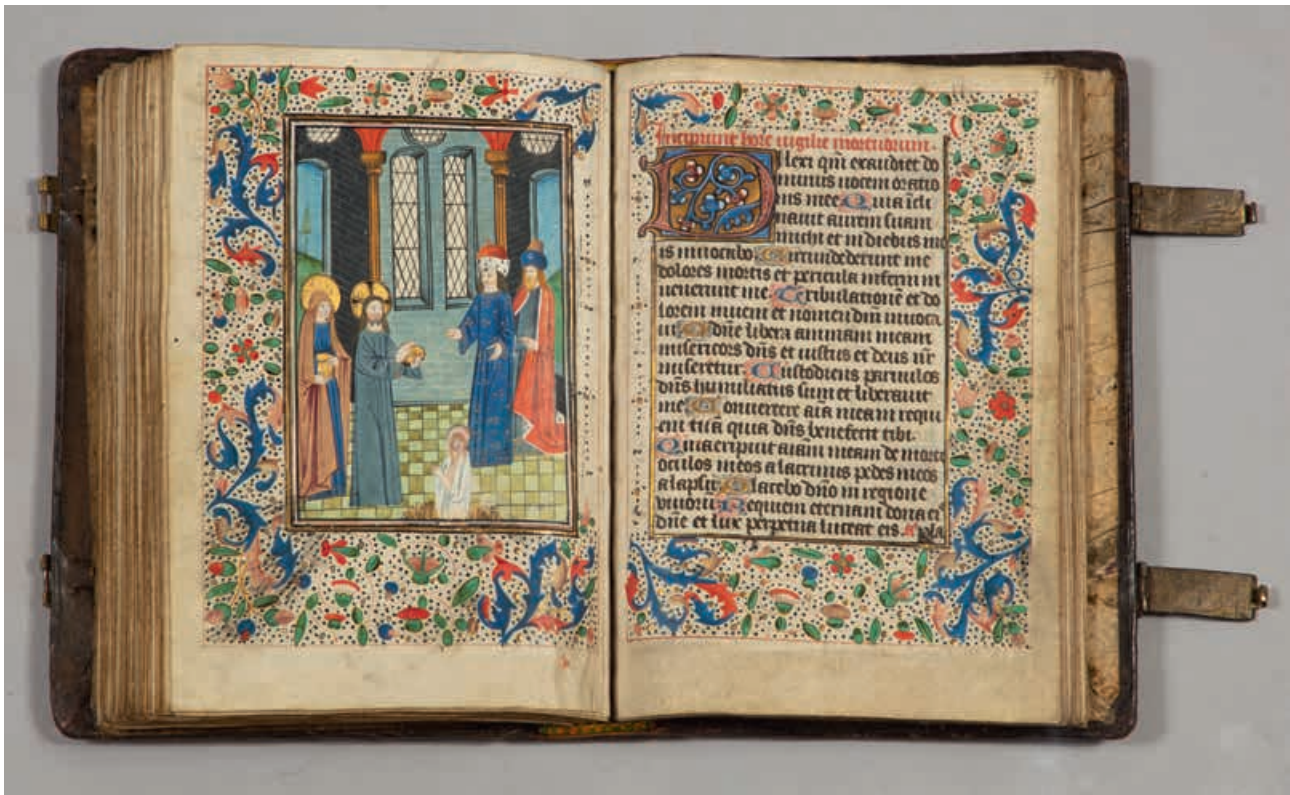 Incipiunt hore vigilie mortuorum.
Dilexi qm̄ exaudiet do
minus vocem oratio
nis mee Quia īcli
nauit aurem suam
michi et in diebus me
is inuocabo Circumdederunt me
dolores mortis et pericula inferni in
uenerunt me Tribulationē et do
lorem inueni et nomen dn̄i inuoca
ui O dn̄e libera animam meam
misericors dn̄s et iustus et deus nr̄
miseretur Custodiens paruulos
dn̄s humiliatus sum et liberauit
me Conuertere aīa mea in requi
em tuā quia dn̄s benefecit tibi.
Quia eripuit aīam meam de morte
oculos meos a lacrimis pedes meos
a lapsu Placebo dn̄o in regione
viuorū Requiem eternam dona eis
dn̄e et lux perpetua luceat eis. a Pla